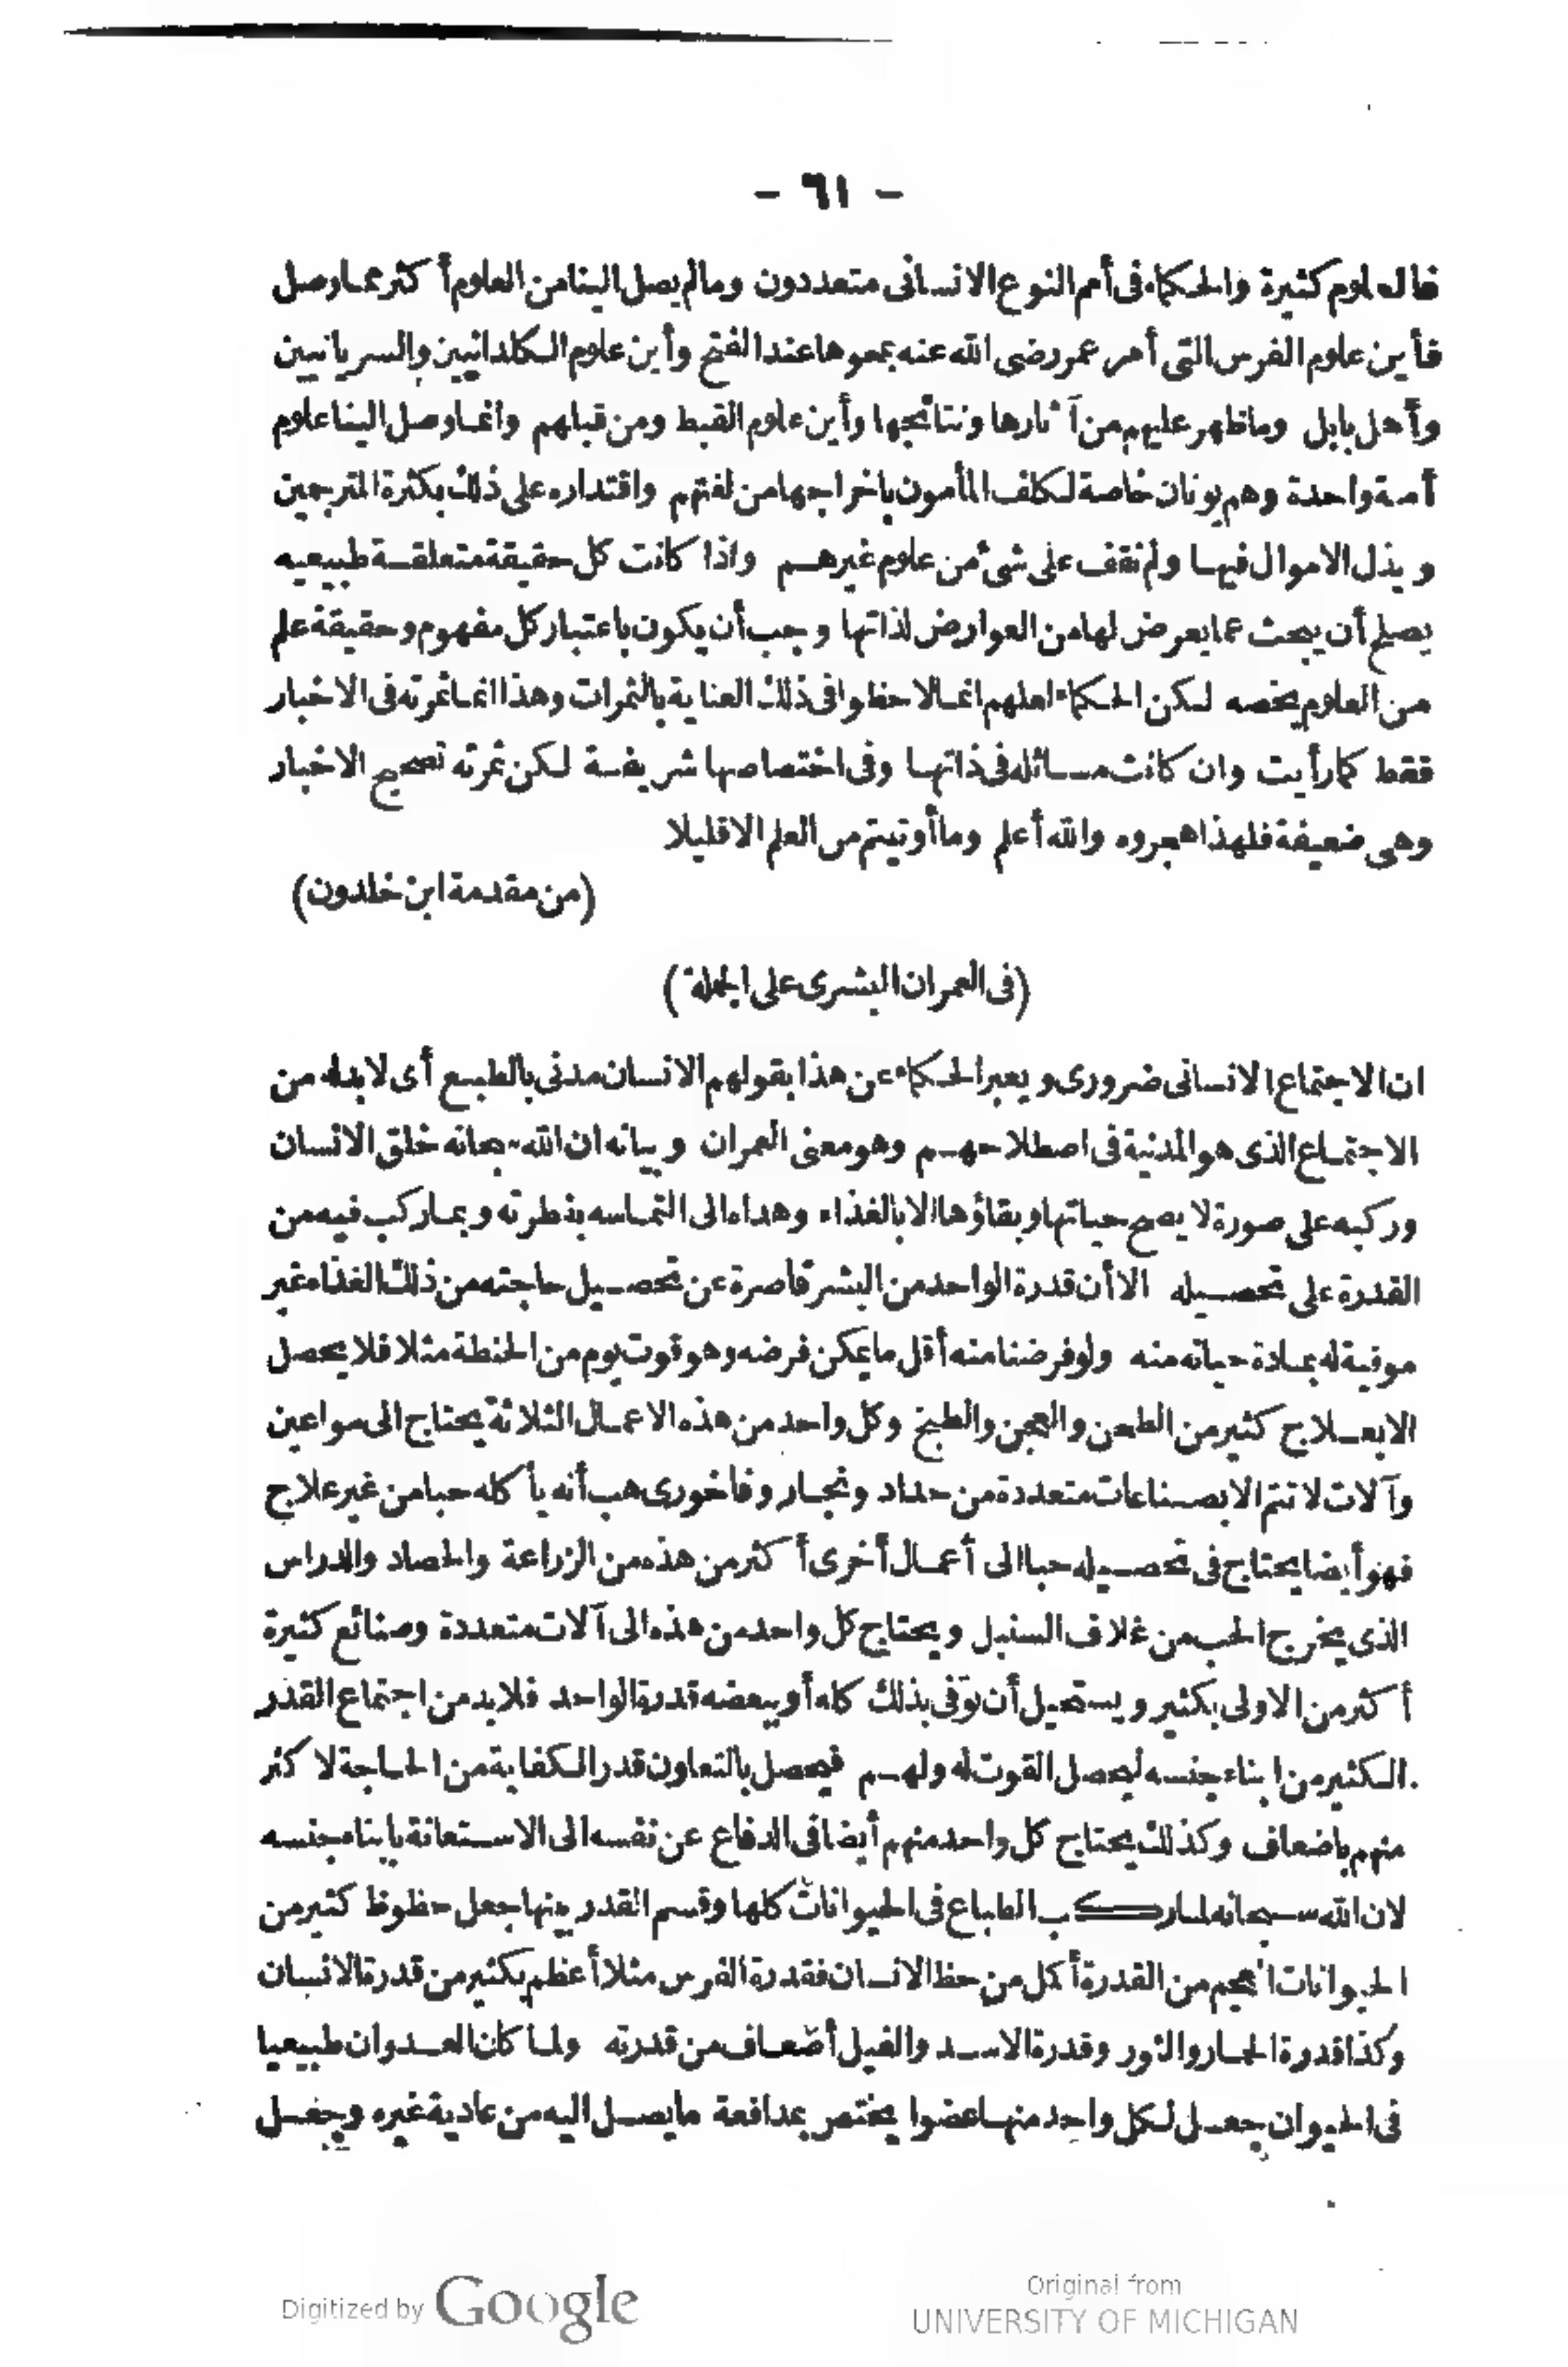 - ٦١ -
فالعلوم كثيرة والحكماء فى أمم النوع الانسانى متعددون وما لم يصل الينا من العلوم أكثر مما وصل
فأين علوم الفرس التى أمر عمر رضى الله عنه بمحوها عند الفتح وأين علوم الكلدانيين والسريانيين
وأهل بابل وما ظهر عليهم من آثارها ونتائجها وأين علوم القبط ومن قبلهم وانما وصل الينا علوم
أمة واحدة وهم يونان خاصة لكلف المأمون باخراجها من لغتهم واقتداره على ذلك بكثرة المترجمين
وبذل الاموال فيها ولم نقف على شئ من علوم غيرهم واذا كانت كل حقيقة متعلقة طبيعيه
يصلح أن يبحث عما يعرض لها من العوارض لذاتها وجب أن يكون باعتبار كل مفهوم وحقيقة علم
من العلوم يخصه لكن الحكماء لعلهم انما لاحظوا فى ذلك العناية بالثمرات وهذا انما ثمرته فى الاخبار
فقط كما رأيت وان كانت مسائله فى ذاتها وفى اختصاصها شريفة لكن ثمرته تصحيح الاخبار
وهى ضعيفة فلهذا هجروه والله أعلم وما أوتيتم من العلم الا قليلا
(من مقدمة ابن خلدون)
(فى العمران البشرى على الجملة)
ان الاجتماع الانسانى ضرورى ويعبر الحكماء عن هذا بقولهم الانسان مدنى بالطبع أى لابد له من
الاجتماع الذى هو المدنية فى اصطلاحهم وهو معنى العمران وبيانه ان الله سبحانه خلق الانسان
وركبه على صورة لا يصح حياتها وبقاؤها الا بالغذاء وهداه الى التماسه بفطرته وبما ركب فيه من
القدرة على تحصيله الا أن قدرة الواحد من البشر قاصرة عن تحصيل حاجته من ذلك الغذاء غير
موفية له بمادة حياته منه ولو فرضنا منه أقل ما يمكن فرضه وهو قوت يوم من الحنطة مثلا فلا يحصل
الا بعلاج كثير من الطحن والعجن والطبخ وكل واحد من هذه الاعمال الثلاثة يحتاج الى مواعين
وآلات لا تتم الا بصناعات متعددة من حداد ونجار وفاخورى هب أنه يأكله حبا من غير علاج
فهو أيضا يحتاج فى تحصيله حبا الى أعمال أخرى أكثر من هذه من الزراعة والحصاد والدراس
الذى يخرج الحب من غلاف السنبل ويحتاج كل واحد من هذه الى آلات متعددة وصنائع كثيرة
أكثر من الاولى بكثير ويستحيل أن توفى بذلك كله أو ببعضه قدرة الواحد فلا بد من اجتماع القدر
الكثير من ابناء جنسه ليحصل القوت له ولهم فيحصل بالتعاون قدر الكفاية من الحاجة لاكثر
منهم باضعاف وكذلك يحتاج كل واحد منهم أيضا فى الدفاع عن نفسه الى الاستعانة بابناء جنسه
لان الله سبحانه لما ركب الطباع فى الحيوانات كلها وقسم القدر بينها جعل حظوظ كثير من
الحيوانات العجم من القدرة أكمل من حظ الانسان فقدرة الفرس مثلا أعظم بكثير من قدرة الانسان
وكذا قدرة الحمار والثور وقدرة الاسد والفيل أضعاف من قدرته ولما كان العدوان طبيعيا
فى الحيوان جعل لكل واحد منها عضوا يختص بمدافعة ما يصل اليه من عادية غيره وجعل
Digitized by Google
Original from
UNIVERSITY OF MICHIGAN